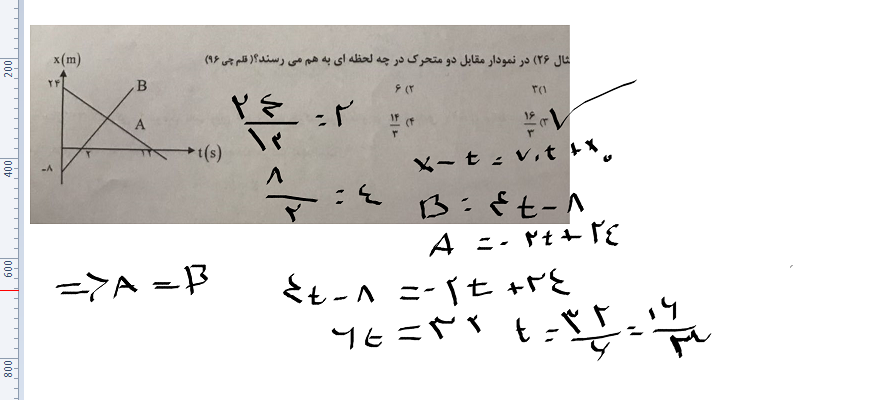 ثال ۲۶) در نمودار مقابل دو متحرک در چه لحظه ای به هم می رسند؟(قلم چی ۹۶)
۱) ۳
۲) ۶
۳) ۱۶/۳
۴) ۱۴/۳
x(m)
۲۴
B
A
۲
۱۲
t(s)
-۸
۲۴/۱۲ = ۲
x - t = v.t + x.
۸/۲ = ۴
B = ۴t - ۸
A = -۲t + ۲۴
=> A = B
۴t - ۸ = -۲t + ۲۴
۶t = ۳۲
t = ۳۲/۶ = ۱۶/۳
200
400
600
800